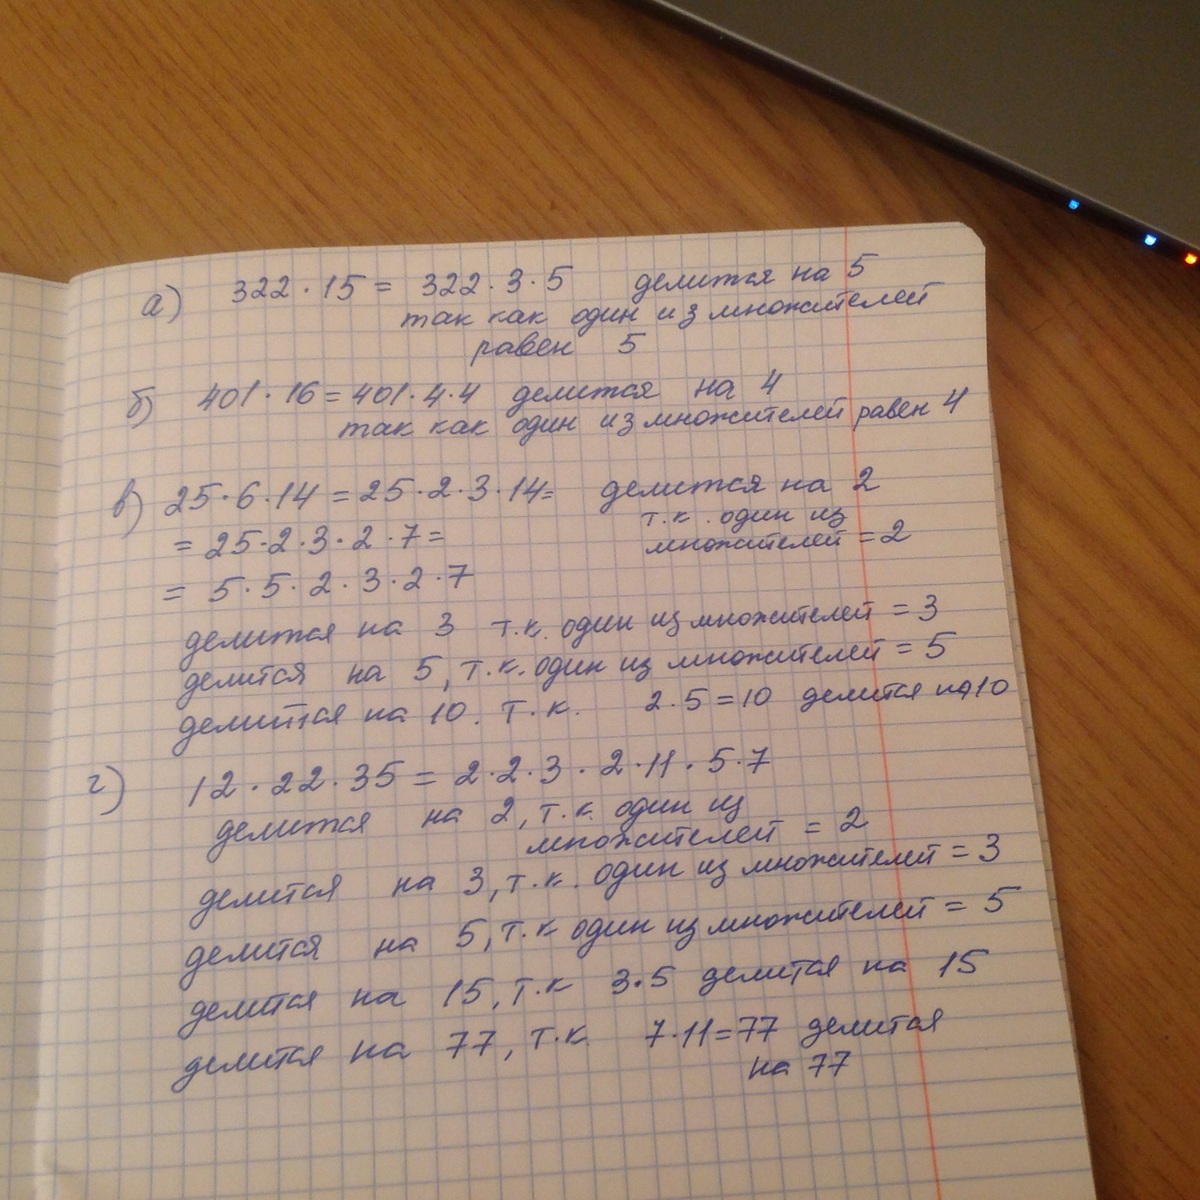 а) 322 · 15 = 322 · 3 · 5 делится на 5
так как один из множителей
равен 5
б) 401 · 16 = 401 · 4 · 4 делится на 4
так как один из множителей равен 4
в) 25 · 6 · 14 = 25 · 2 · 3 · 14 = делится на 2
т.к. один из
= 25 · 2 · 3 · 2 · 7 = множителей = 2
= 5 · 5 · 2 · 3 · 2 · 7
делится на 3 т.к. один из множителей = 3
делится на 5, т.к. один из множителей = 5
делится на 10. т.к. 2 . 5 = 10 делится на 10
г) 12 · 22 · 35 = 2 · 2 · 3 · 2 · 11 · 5 · 7
делится на 2, т.к. один из
множителей = 2
делится на 3, т.к. один из множителей = 3
делится на 5, т.к один из множителей = 5
делится на 15, т.к 3 · 5 делится на 15
делится на 77, т.к. 7 · 11 = 77 делится
на 77